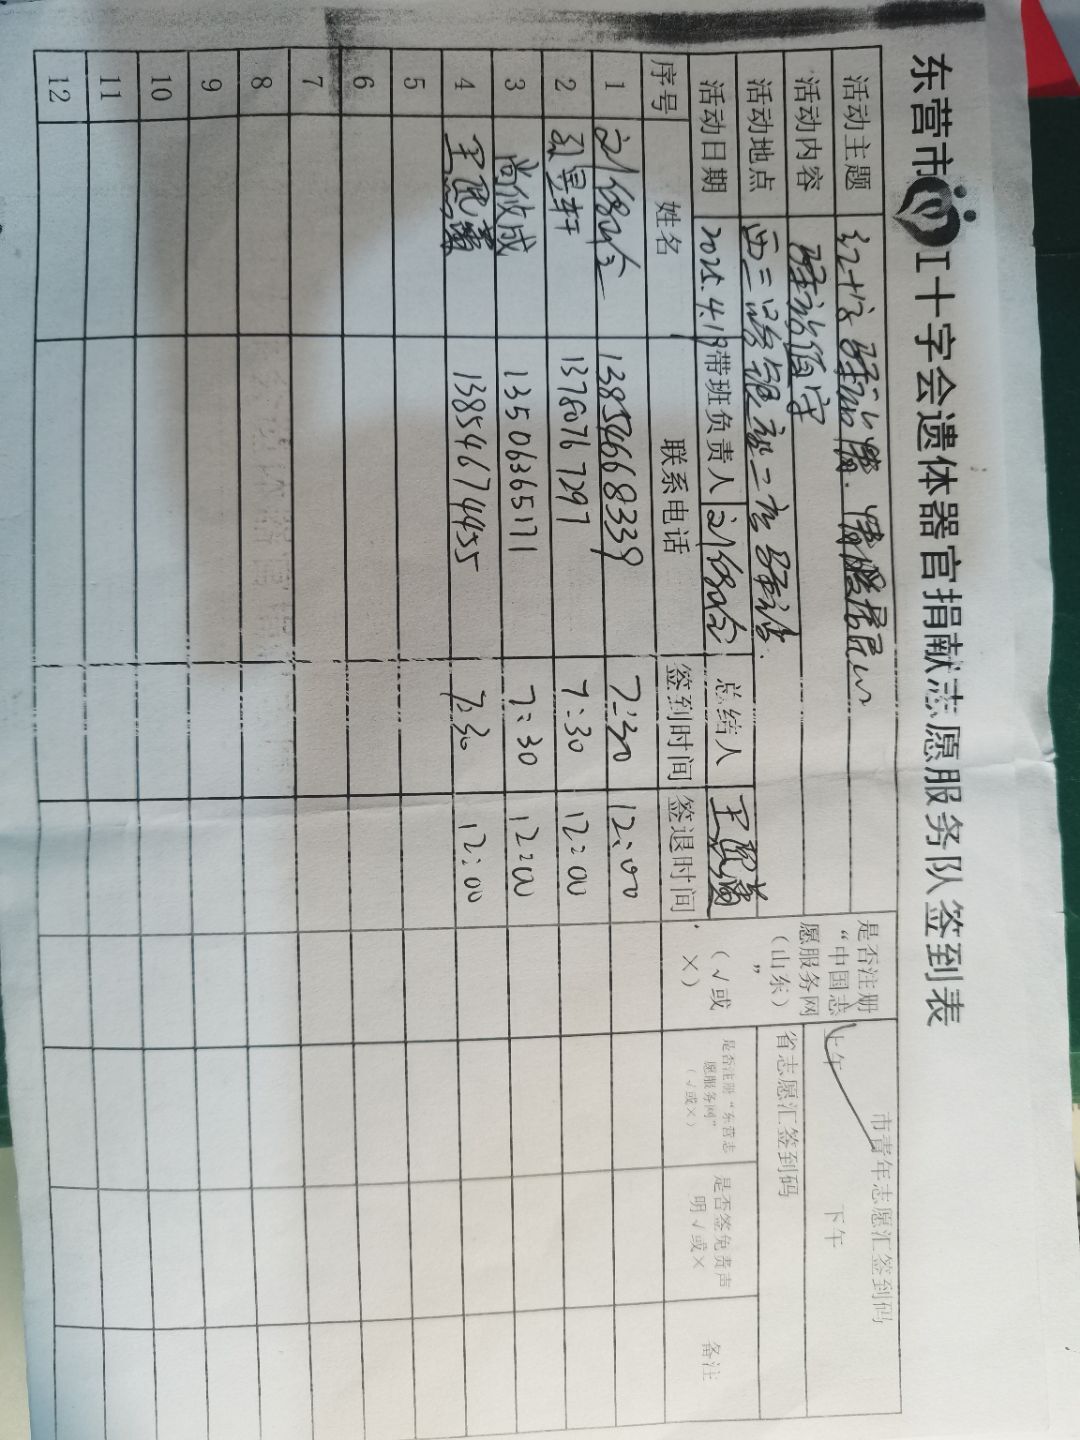 东营市红十字会遗体器官捐献志愿服务队签到表
活动主题 红十字驿站情. 情暖居民心
活动内容 驿站值守
活动地点 西三路银 驿站.
活动日期 2025.4.19 带班负责人 刘 总结人 王
是否注册“中国志愿服务网（山东）”
（√或×）
市青年志愿汇签到码
上午 下午
省志愿汇签到码
序号 姓名 联系电话 签到时间 签退时间 是否注册“东营志愿服务网”（√或×） 是否签免责声明√或× 备注
1 刘 13854668339 7:30 12:00
2 昊轩 13780767297 7:30 12:00
3 尚攸成 13506365171 7:30 12:00
4 王 13854674455 7:30 12:00
5
6
7
8
9
10
11
12